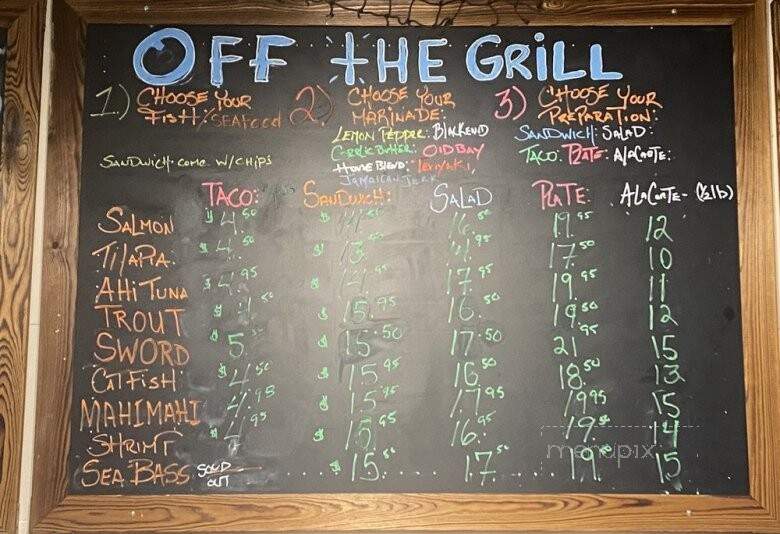 OFF THE GRILL
1) CHOOSE YOUR FISH/SEAFOOD
2) CHOOSE YOUR MARINADE:
3) CHOOSE YOUR PREPARATION:
LEMON PEPPER: BLACKEND
OLD BAY
HOUSE BLEND:
JAMAICAN JERK
SANDWICH: SALAD:
TACO: PLATE: ALACARTE:
SANDWICH COME W/CHIPS
TACO: SANDWICH: SALAD PLATE: ALACARTE- (½lb)
SALMON $4.50 $ 16.50 19.95 12
TILAPIA $4.50 $ 17.50 10
AHI TUNA $4.95 $ 17.95 19.95 11
TROUT $ $15.95 16.50 19.50 12
SWORD $5. $15.50 17.50 21.95 15
CATFISH $4.50 $15.95 16.50 18.50 13
MAHIMAHI 4.95 $15.95 17.95 19.95 15
SHRIMP $15.95 16.95 19. 14
SEA BASS SOLD OUT $15. 17.50 19. 15
menupix